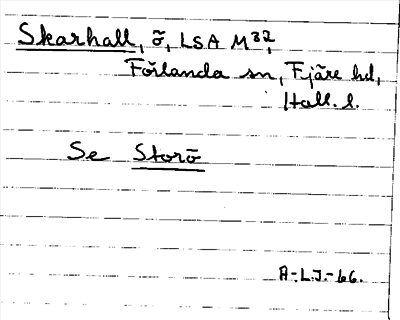 Skarhall, ö, LSA M³²,
Förlanda sn, Fjäre hd,
Hall. l.
Se Storö
A-L.J.-66.